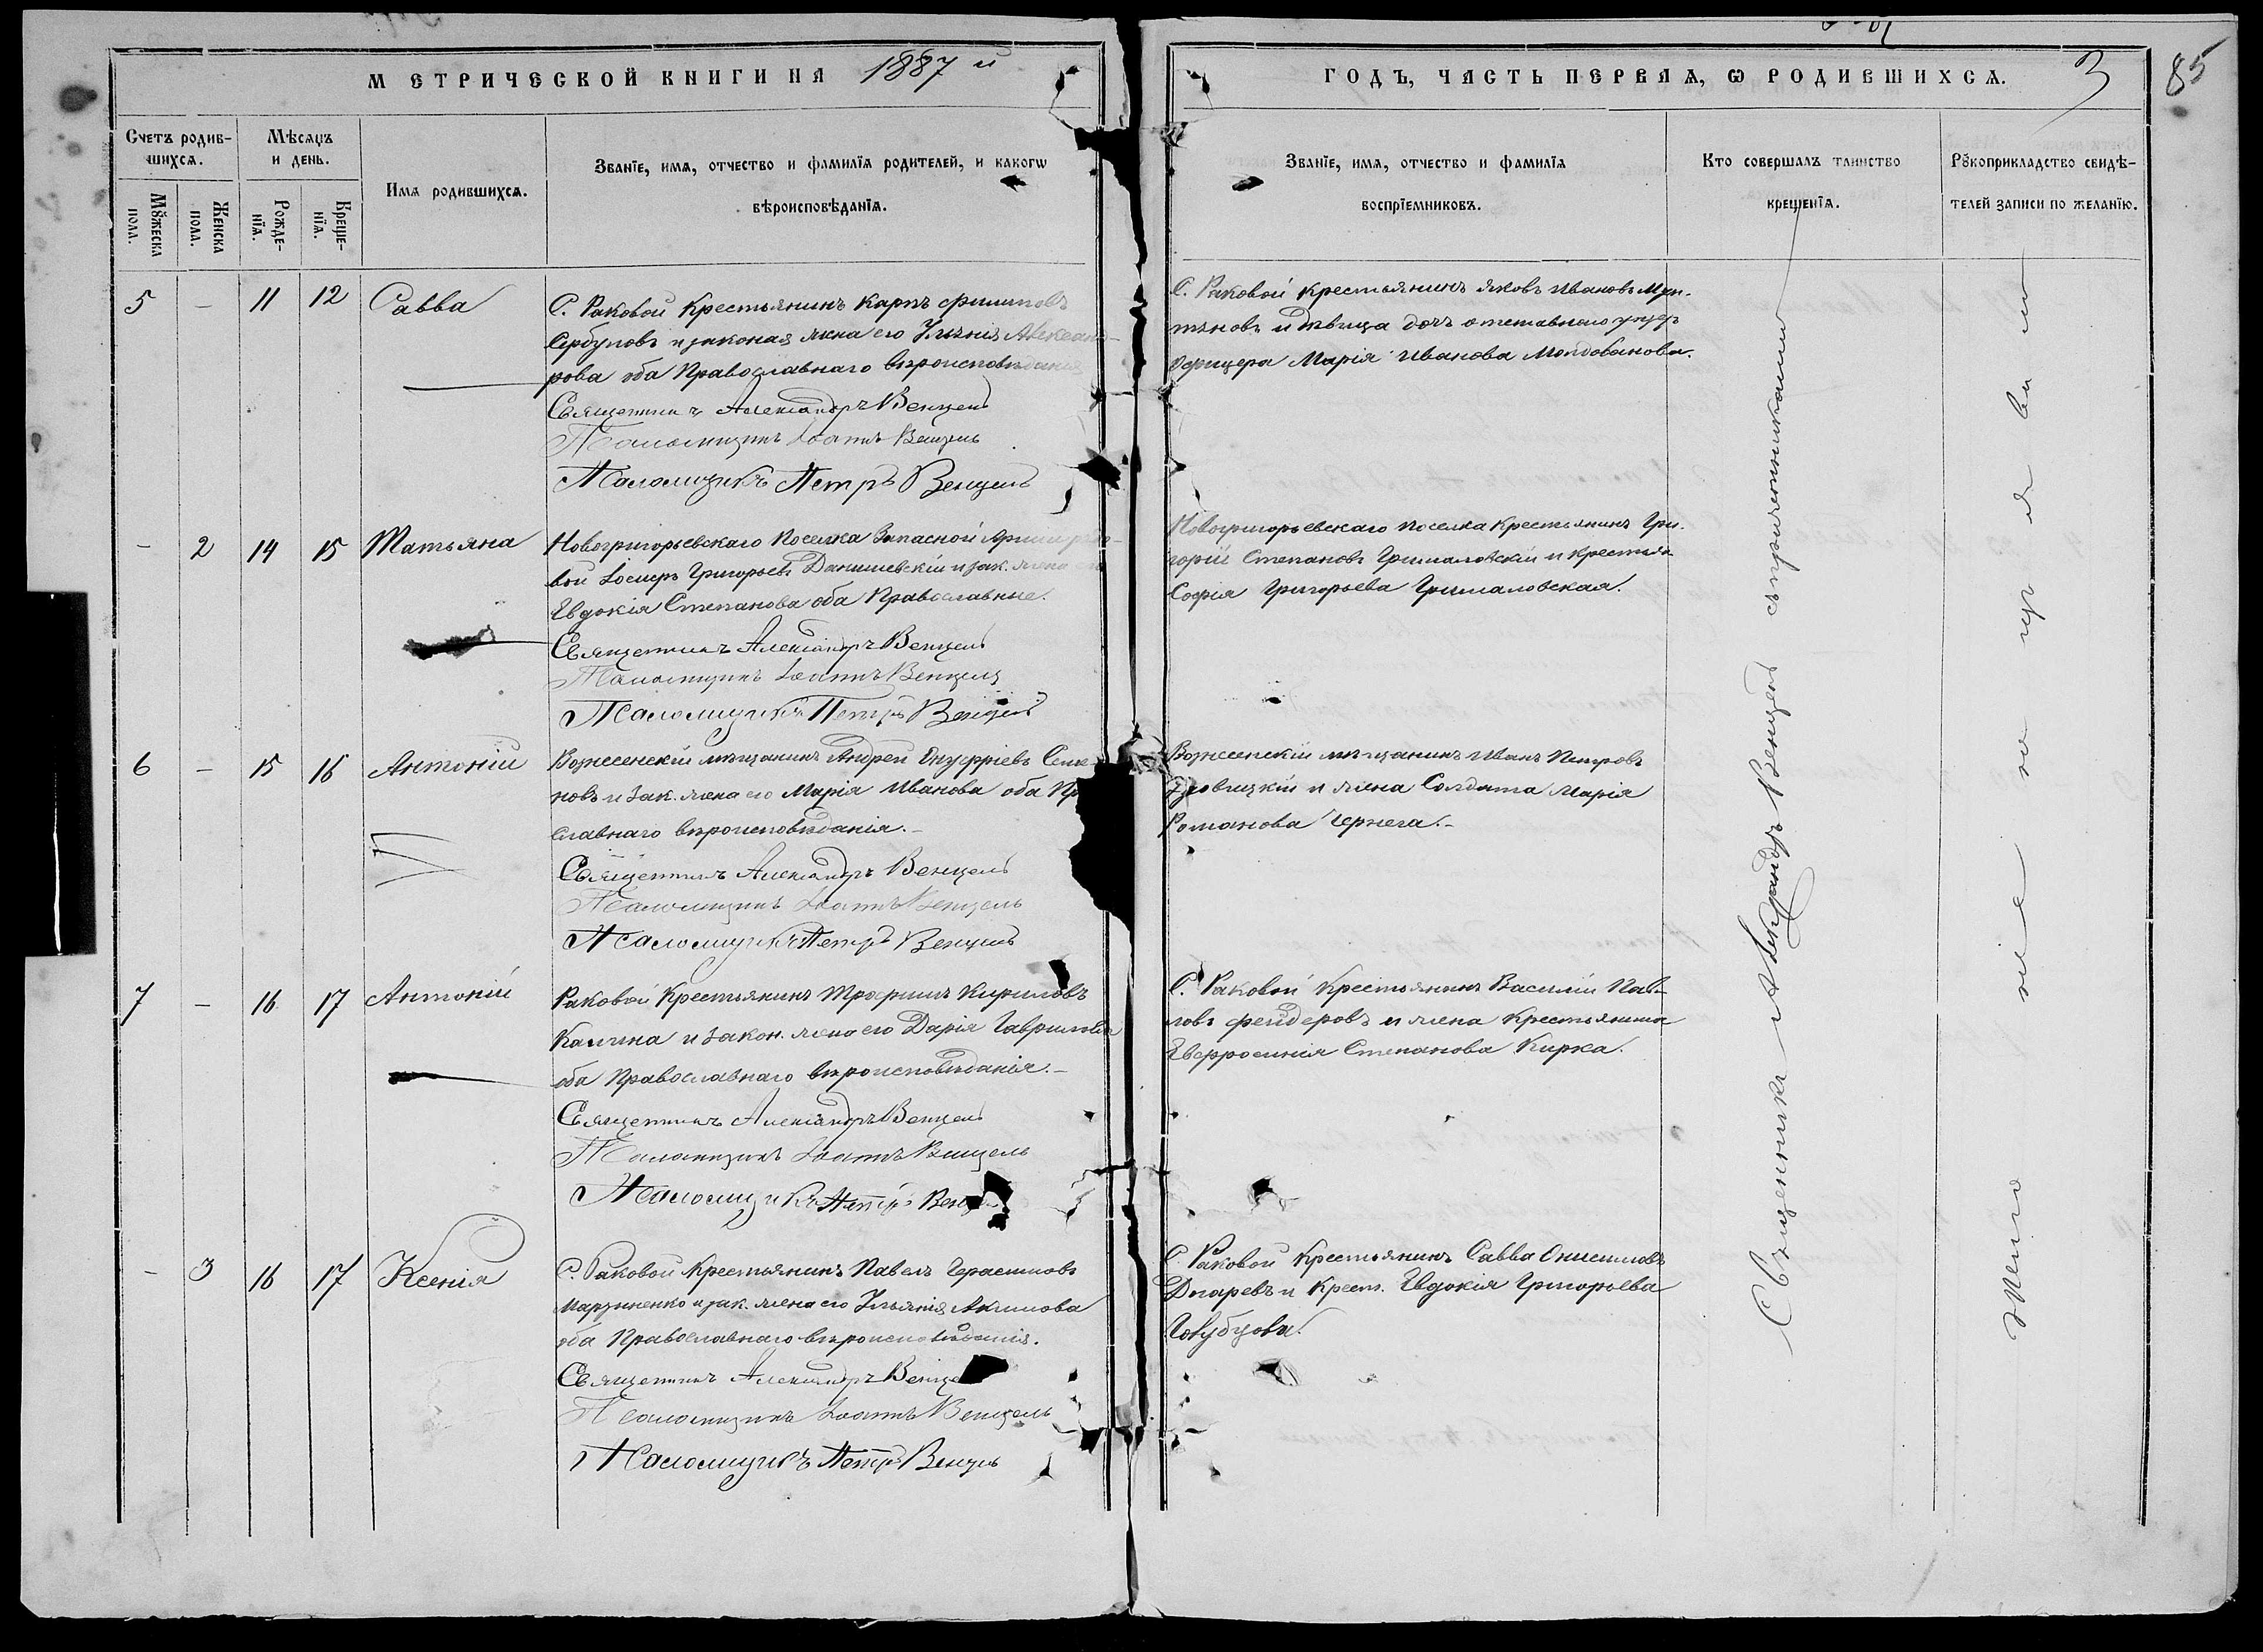 МЕТРИЧЕСКОЙ КНИГИ НА 1887 й
ГОДЪ, ЧАСТЬ ПЕРВАѦ, Ѡ РОДИВШИХСѦ.
3
85
Счетъ родив-
шихсѧ.
Мѣсѧцъ
и день.
Имѧ родившихсѧ.
Званїе, имѧ, отчество и фамилїѧ родителей, и какогѡ
вѣроисповѣданїѧ.
Мꙋжеска
пола.
Женска
пола.
Рожде-
нїѧ.
Креще-
нїѧ.
Званїе, имѧ, отчество и фамилїѧ
воспрїемниковъ.
Кто совершалъ таинство
крещенїѧ.
Рꙋкоприкладство свидѣ-
телей записи по желанїю.
5 – 11 12 Савва
С. Раковой Крестьянинъ Карпъ Филиповъ
Сербуловъ и законая жена его Ульянія Александ-
рова оба Православнаго вѣроисповѣданія
Священникъ Александръ Венцель
Псаломщикъ Іоаннъ Венцель
Псаломщикъ Петръ Венцель
С. Раковой крестьянинъ Яковъ Ивановъ Мун-
тяновъ и дѣвица дочь отставнаго унтеръ
Офицера Марія Иванова Молдованова.
– 2 14 15 Татьяна
Новогригорьевскаго Поселка Запасной Арміи рядо-
вой Іосифъ Григорьевъ Данишевскій и зак. жена его
Евдокія Степанова оба Православные.
Священникъ Александръ Венцель
Псаломщикъ Іоаннъ Венцель
Псаломщикъ Петръ Венцель
Новогригорьевскаго поселка Крестьянинъ Гри-
горій Степановъ Грималовскій и крестьян
Софія Григорьева Грималовская.
6 – 15 16 Антоній
Вознесенскій мѣщанинъ Андрей Онуфріевъ Семе-
новъ и зак. жена его Марія Иванова оба Пр
славнаго вѣроисповѣданія.–
Священникъ Александръ Венцель
Псаломщикъ Іоаннъ Венцель
Псаломщикъ Петръ Венцель
Вознесенскій мѣщанинъ Иванъ Петровъ
и жена Солдата Марія
Романова Чернега.–
7 – 16 17 Антоній
Раковой Крестьянинъ Трофимъ Кириловъ
Калина и закон. жена его Дарія Гаврилова
оба Православнаго вѣроисповѣданія.–
Священникъ Александръ Венцель
Псаломщикъ Іоаннъ Венцель
Псаломщикъ Петръ Венцель
С. Раковой Крестьянинъ Василій Пав-
ловъ Фендеровъ и жена Крестьянина
Евфросинія Степанова Кирка.
– 3 16 17 Ксенія
С. Раковой Крестьянинъ Павелъ Герасимовъ
Марзиненко и зак. жена его Ульянія Акимова
оба Православнаго вѣроисповѣданія.
Священникъ Александръ Венцель
Псаломщикъ Іоаннъ Венцель
Псаломщикъ Петръ Венцель
С. Раковой Крестьянинъ Савва Онисимовъ
Догаревъ и Крест. Евдокія Григорьева
Голубцова.
Священникъ Александръ Венцель съ причетниками